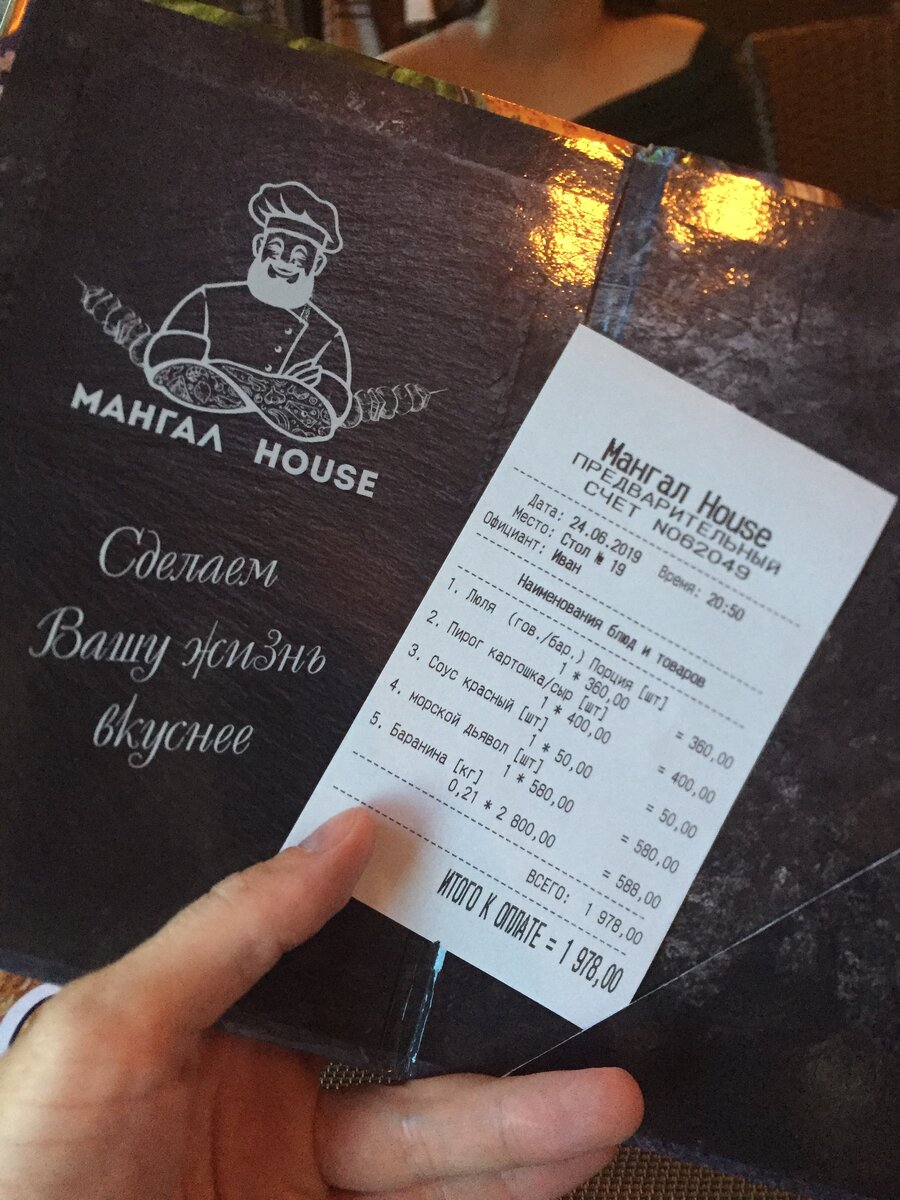 МАНГАЛ HOUSE
Сделаем
Вашу жизнь
вкуснее
Мангал House
ПРЕДВАРИТЕЛЬНЫЙ
СЧЕТ №62049
Дата: 24.06.2019 Время: 20:50
Место: Стол № 19
Официант: Иван
Наименования блюд и товаров
1. Люля (гов./бар.) Порция [шт]
1 * 360,00 = 360,00
2. Пирог картошка/сыр [шт]
1 * 400,00 = 400,00
3. Соус красный [шт]
1 * 50,00 = 50,00
4. морской дьявол [шт]
1 * 580,00 = 580,00
5. Баранина [кг]
0,21 * 2 800,00 = 588,00
ВСЕГО: 1 978,00
ИТОГО К ОПЛАТЕ = 1 978,00